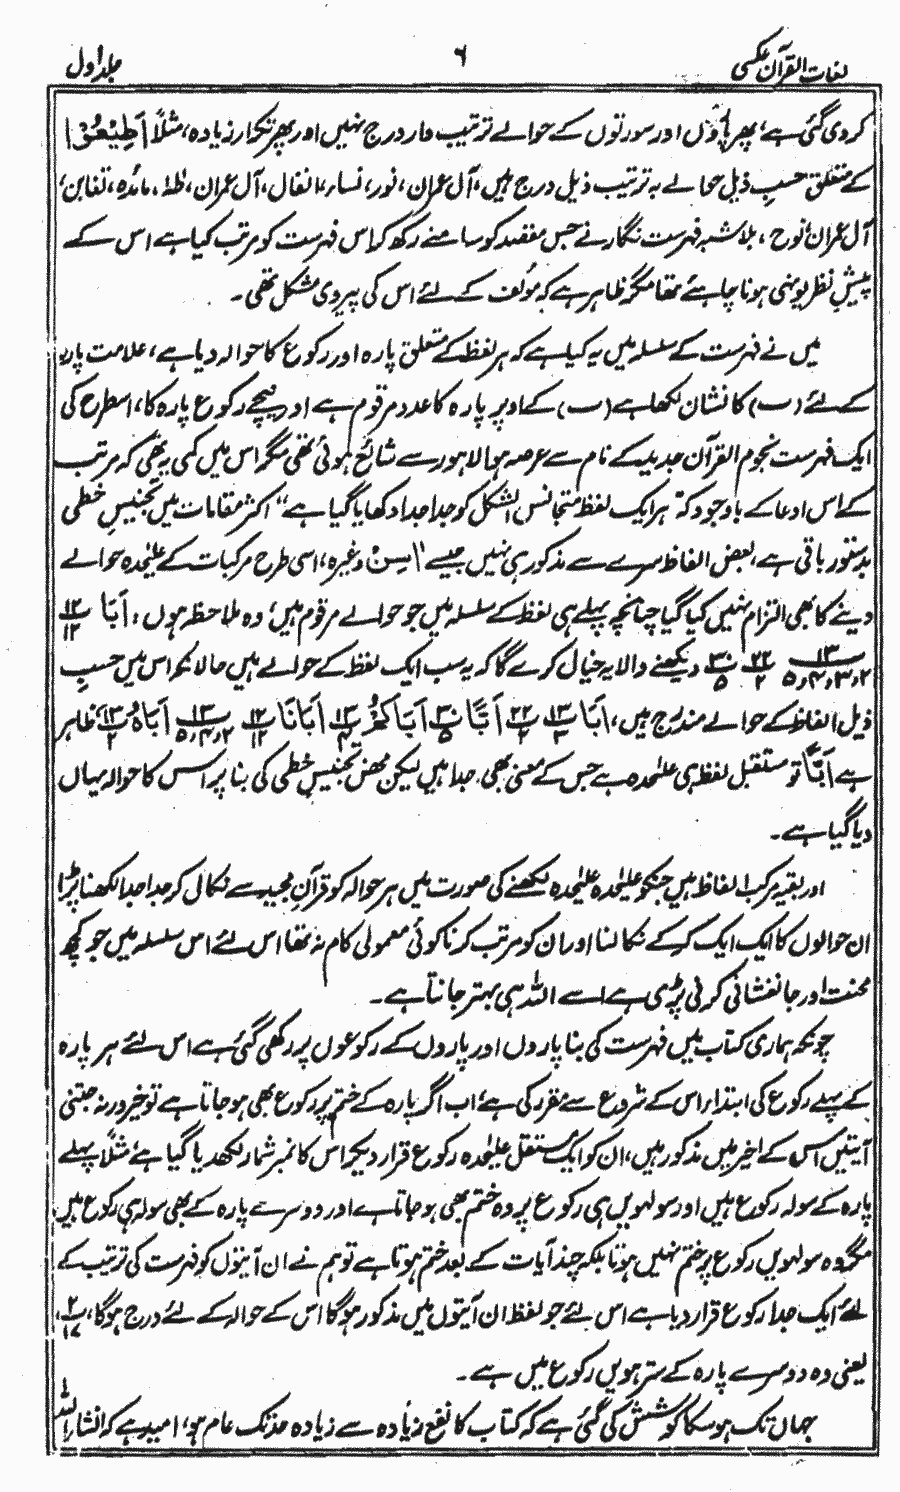 لغات القرآن عکسی ۶ جلد اول
کردی گئی ہے، پھر پاؤں اور سورتوں کے حوالے ترتیب وار درج نہیں اور پھر تکرار زیادہ، مثلاً اَطِیْعُوْا
کے متعلق حسبِ ذیل حوالے بہ ترتیب ذیل درج ہیں، آل عمران، نور، نساء، انفال، آل عمران، طٰہٰ، مائدہ، تغابن،
آل عمران، نوح، بلاشبہ فہرست نگار نے جس مقصد کو سامنے رکھ کر اس فہرست کو مرتب کیا ہے اس کے
پیشِ نظر یونہی ہونا چاہئے تھا مگر ظاہر ہے کہ مؤلف کے لئے اس کی پیروی مشکل تھی۔
میں نے فہرست کے سلسلہ میں یہ کیا ہے کہ ہر لفظ کے متعلق پارہ اور رکوع کا حوالہ دیا ہے، علامت پارہ
کے لئے (پ) کا نشان لکھا ہے (پ) کے اوپر پارہ کا عدد مرقوم ہے اور نیچے رکوع پارہ کا، اسطرح کی
ایک فہرست نجوم القرآن جدید کے نام سے عرصہ ہوا لاہور سے شائع ہوئی تھی مگر اس میں کمی یہ تھی کہ مرتب
کے اس ادعا کے باوجود کہ "ہر ایک لفظ متجانس الشکل کو جدا جدا دکھایا گیا ہے" اکثر مقامات میں تجنیسِ خطی
بدستور باقی ہے، بعض الفاظ سرے سے مذکور ہی نہیں جیسے اٰسِنٍ وغیرہ، اسی طرح مرکبات کے علیحدہ حوالے
دینے کا بھی التزام نہیں کیا گیا چنانچہ پہلے ہی لفظ کے سلسلہ میں جو حوالے مرقوم ہیں، وہ ملاحظہ ہوں، اَبَا پ ۱۲/۱۲
پ ۱۳/۲،۳،۴،۵ پ ۲۲/۲ پ ۳۰/۵ دیکھنے والا یہ خیال کرے گا کہ یہ سب ایک لفظ کے حوالے ہیں حالانکہ اس میں حسبِ
ذیل الفاظ کے حوالے مندرج ہیں، اَبَا پ ۱۳/۳ اَبَا پ ۲۲/۲ اَبًّا پ ۳۰/۵ اَبَاکُمْ پ ۱۳/۴ اَبَانَا پ ۱۲/۱۲ پ ۱۳/۲،۴،۵ اَبَاهُ پ ۱۳/۲، ظاہر
ہے اَبًّا تو مستقل لفظ ہی علیحدہ ہے جس کے معنی بھی جدا ہیں لیکن محض تجنیسِ خطی کی بنا پر اس کا حوالہ یہاں
دیا گیا ہے۔
اور بقیہ مرکب الفاظ ہیں جنکو علیحدہ علیحدہ لکھنے کی صورت میں ہر حوالہ کو قرآن مجید سے نکال کر جدا جدا لکھنا پڑتا
ان حوالوں کا ایک ایک کر کے نکالنا اور ان کو مرتب کرنا کوئی معمولی کام نہ تھا اس لئے اس سلسلہ میں جو کچھ
محنت اور جانفشانی کرنی پڑی ہے اسے اللہ ہی بہتر جانتا ہے۔
چونکہ ہماری کتاب میں فہرست کی بنا پاروں اور پاروں کے رکوعوں پر رکھی گئی ہے اس لئے ہر پارہ
کے پہلے رکوع کی ابتداء اس کے شروع سے مقرر کی ہے، اب اگر پارہ کے ختم پر رکوع بھی ہو جاتا ہے تو خیر ورنہ جتنی
آیتیں اس کے اخیر میں مذکور ہیں، ان کو ایک مستقل علیحدہ رکوع قرار دیکر اس کا نمبر شمار لکھدیا گیا ہے، مثلاً پہلے
پارہ کے سولہ رکوع ہیں اور سولہویں ہی رکوع پر وہ ختم بھی ہو جاتا ہے اور دوسرے پارہ کے بھی سولہ ہی رکوع ہیں
مگر وہ سولہویں رکوع پر ختم نہیں ہوتا بلکہ چند آیات کے بعد ختم ہوتا ہے تو ہم نے ان آیتوں کو فہرست کی ترتیب کے
لئے ایک جدا رکوع قرار دیا ہے اس لئے جو لفظ ان آیتوں میں مذکور ہوگا اس کے حوالہ کے لئے درج ہوگا، پ ۲/۱۷،
یعنی وہ دوسرے پارہ کے سترہویں رکوع میں ہے۔
جہاں تک ہو سکا کوشش کی گئی ہے کہ کتاب کا نفع زیادہ سے زیادہ حد تک عام ہو، امید ہے کہ انشاء اللہ